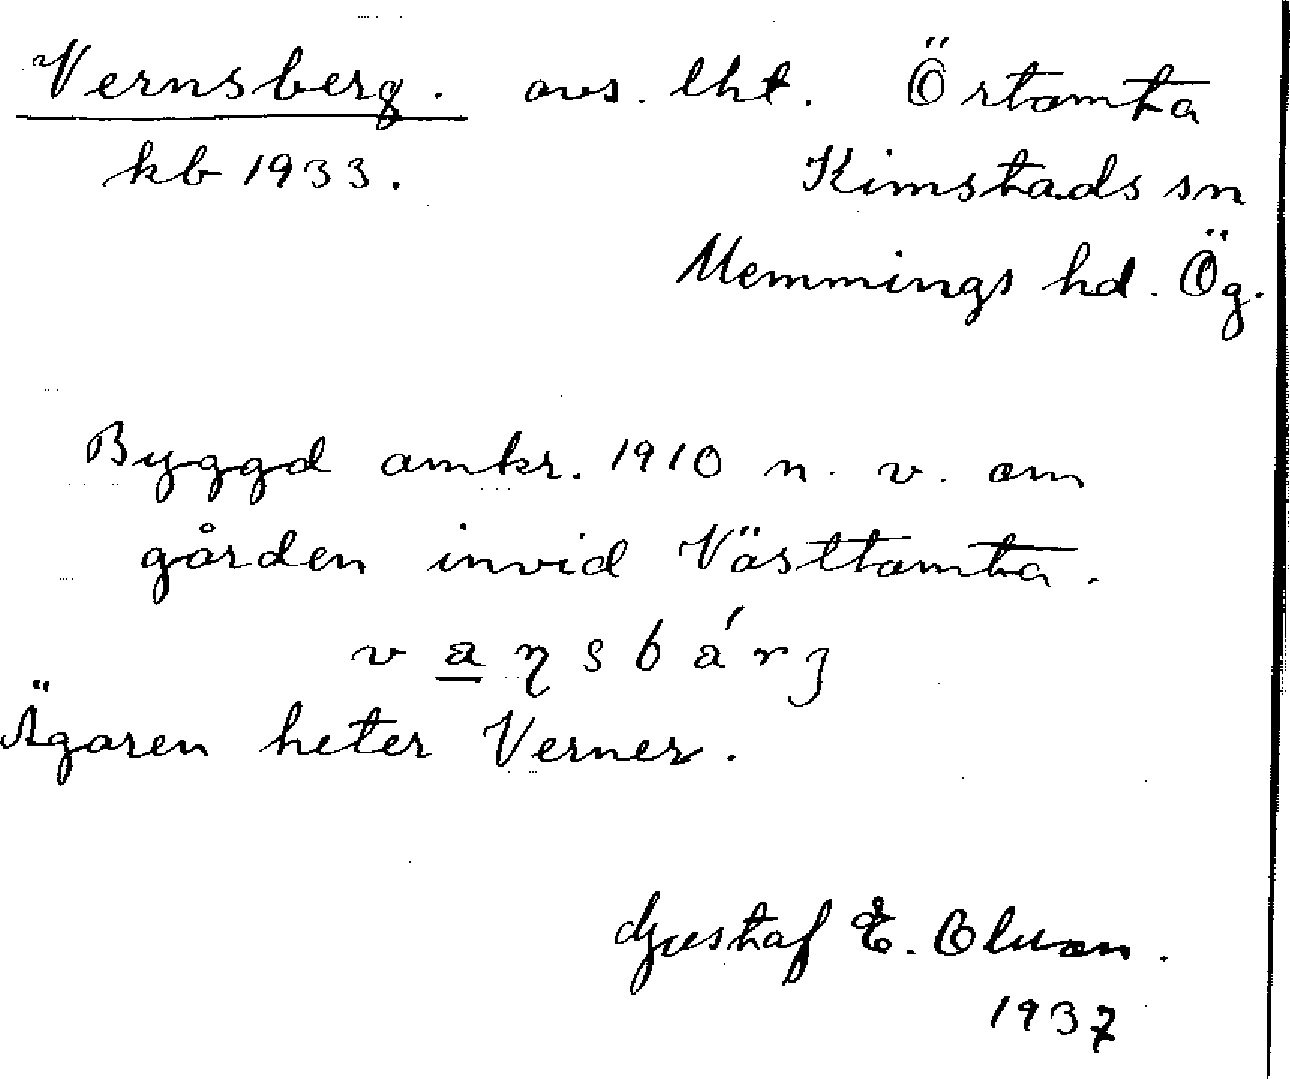 Vernsberg. avs. lht. Örtomta
kb 1933. Kimstads sn
Memmings hd. Ög.
Byggd omkr. 1910 n. v. om
gården invid Västtomta.
Ägaren heter Verner.
Gustaf E. Olson.
1937